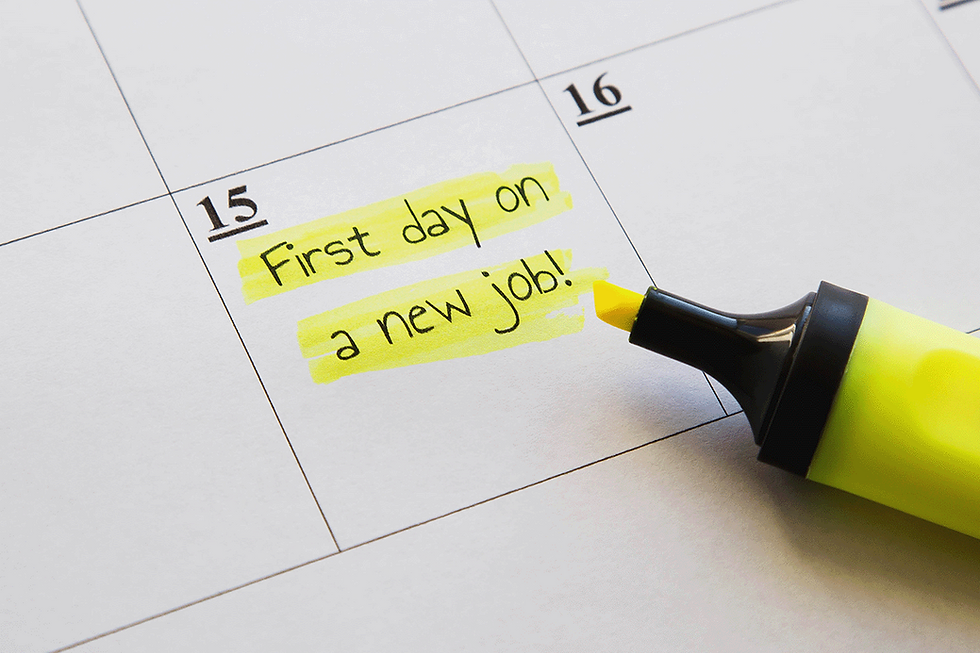 15
First day on
a new job!
16